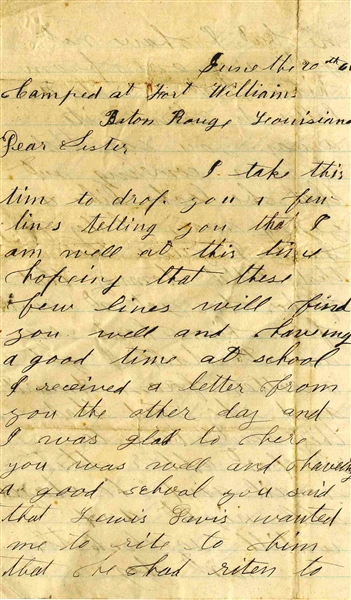 June the 20th 6
Camped at Fort Williams
Baton Rouge Louisiana
Dear Sister
I take this
time to drop you a few
lines telling you that I
am well at this time
hopeing that these
few lines will find
you well and haveing
a good time at school
I received a letter from
you the other day and
I was glad to here
you was well and haveing
a good school you said
that Lewis Davis wanted
me to rite to him
that he had riten to